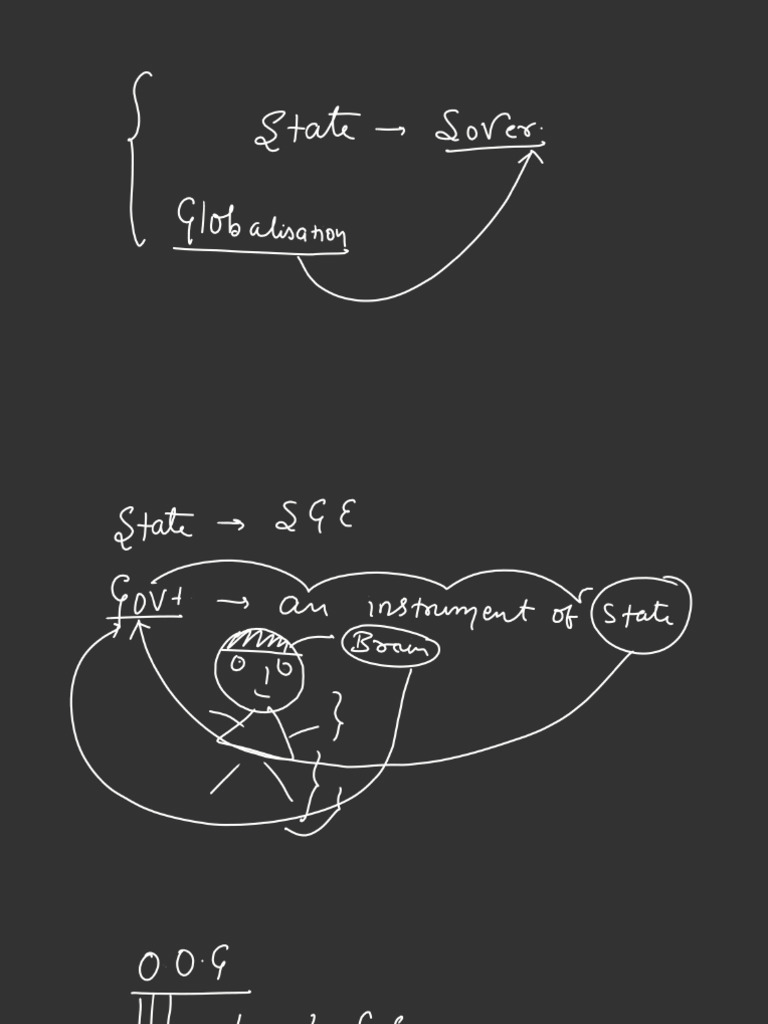 State → Sover.
Globalisation
State → S G E
Govt. → an instrument of State
Brain
O O.G